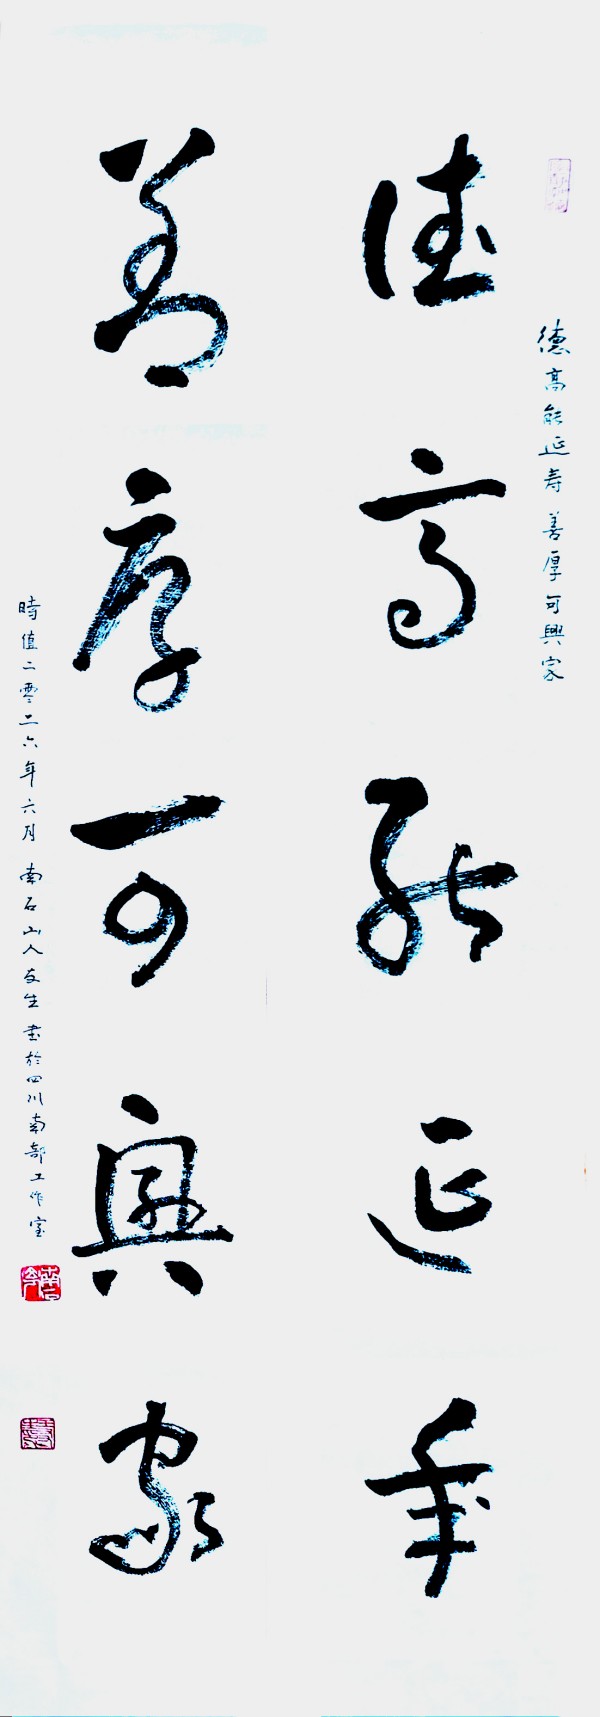 德高能延寿 善厚可興家
德高能延寿
善厚可興家
時值二零二六年六月 南石山人友生 書於四川南部工作室